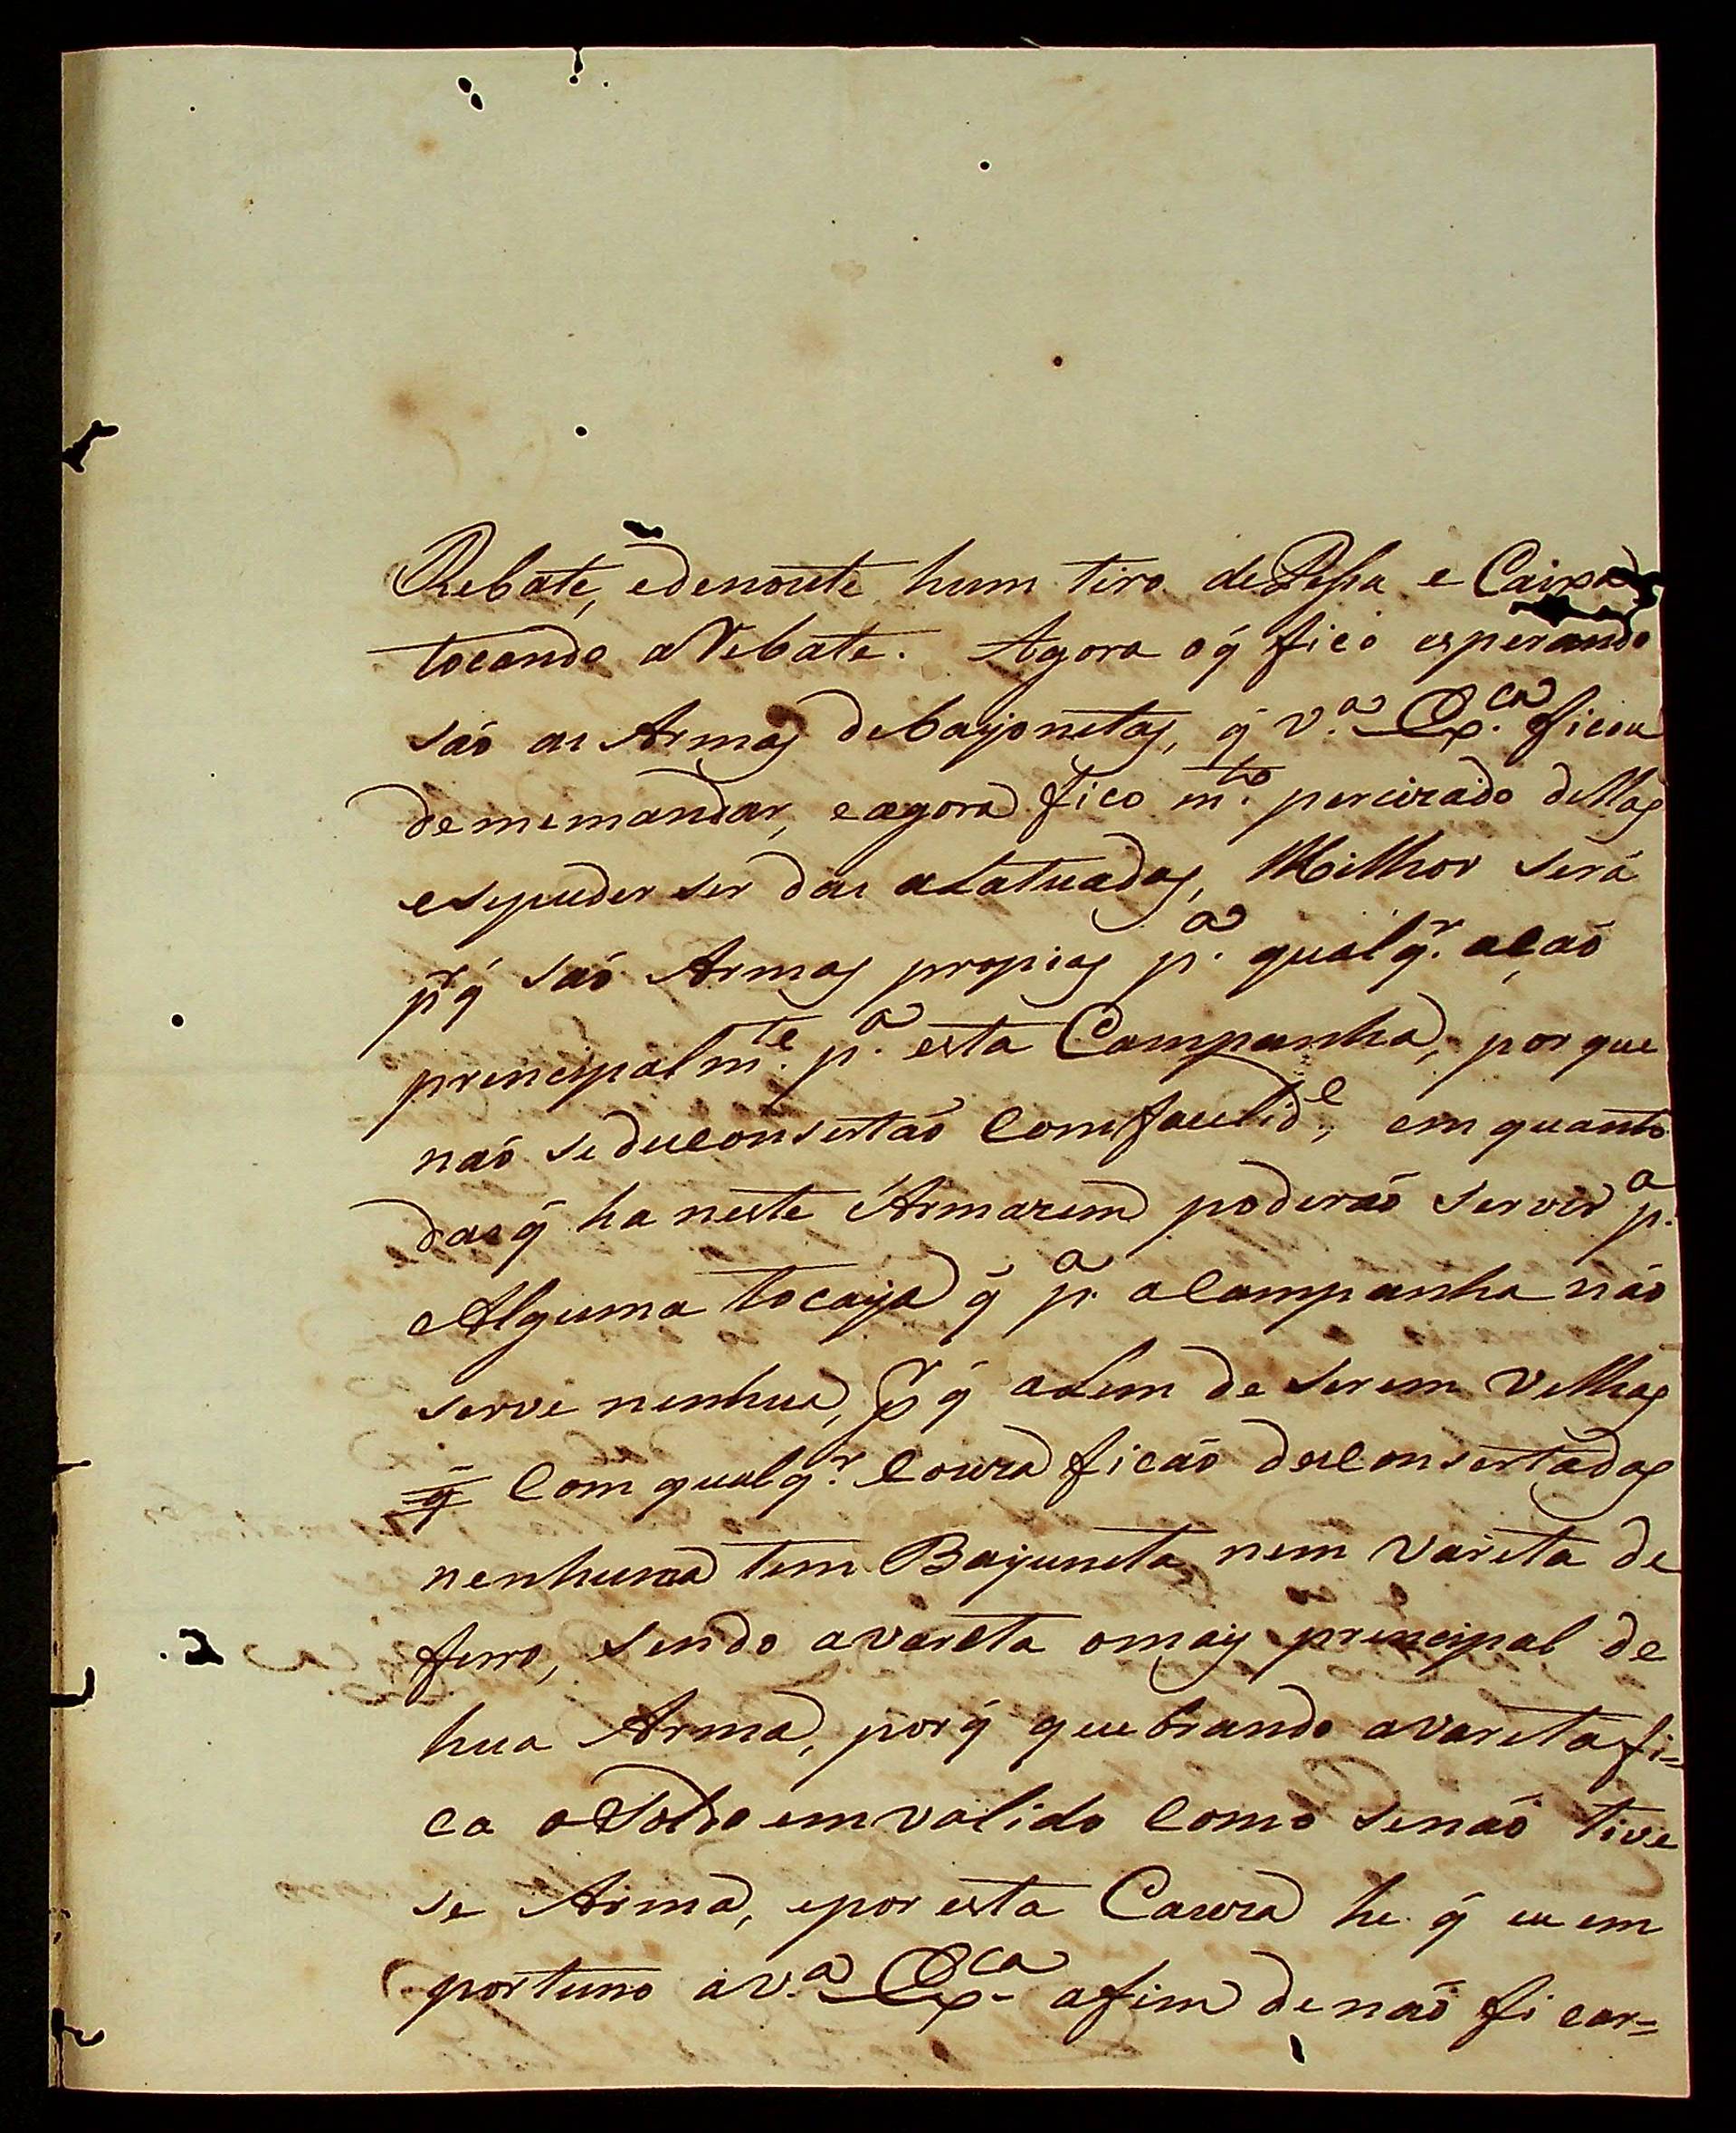 Rebate, edenoute hum tiro dePessa e Caixa
tocando aRebate. Agora oq̃ fico esperando
saõ as Armas debayonetas, q̃ V.ª Ex.ca ficou
dememandar, eagora fico m.to percizado dellas
esepuder ser das aLatuadas, Milhor será
prq̃ saõ Armas propias p.ª qualq.r açaõ
principalm.te p.ª esta Campanha, por que
naõ sedesconsertaõ Comfacelid.e, em quanto
dasq̃ ha neste Armazem poderaõ servir p.ª
Alguma tocaya q̃ p.ª aCampanha naõ
serve nenhua, Pr q̃ aLem de serem Velhas
q̃ Com qualq.r Couza ficaõ desConsertadas
nenhuma tem Bayuneta nem Vareta de
ferro, sendo avareta omais principal de
hua Arma, porq̃ quebrando avareta fi=
ca oSoldo emvalido Como senaõ tive
se Arma, epor esta Cauza he q̃ eu em
portuno aV.ª Ex.ca afim denaõ ficar=